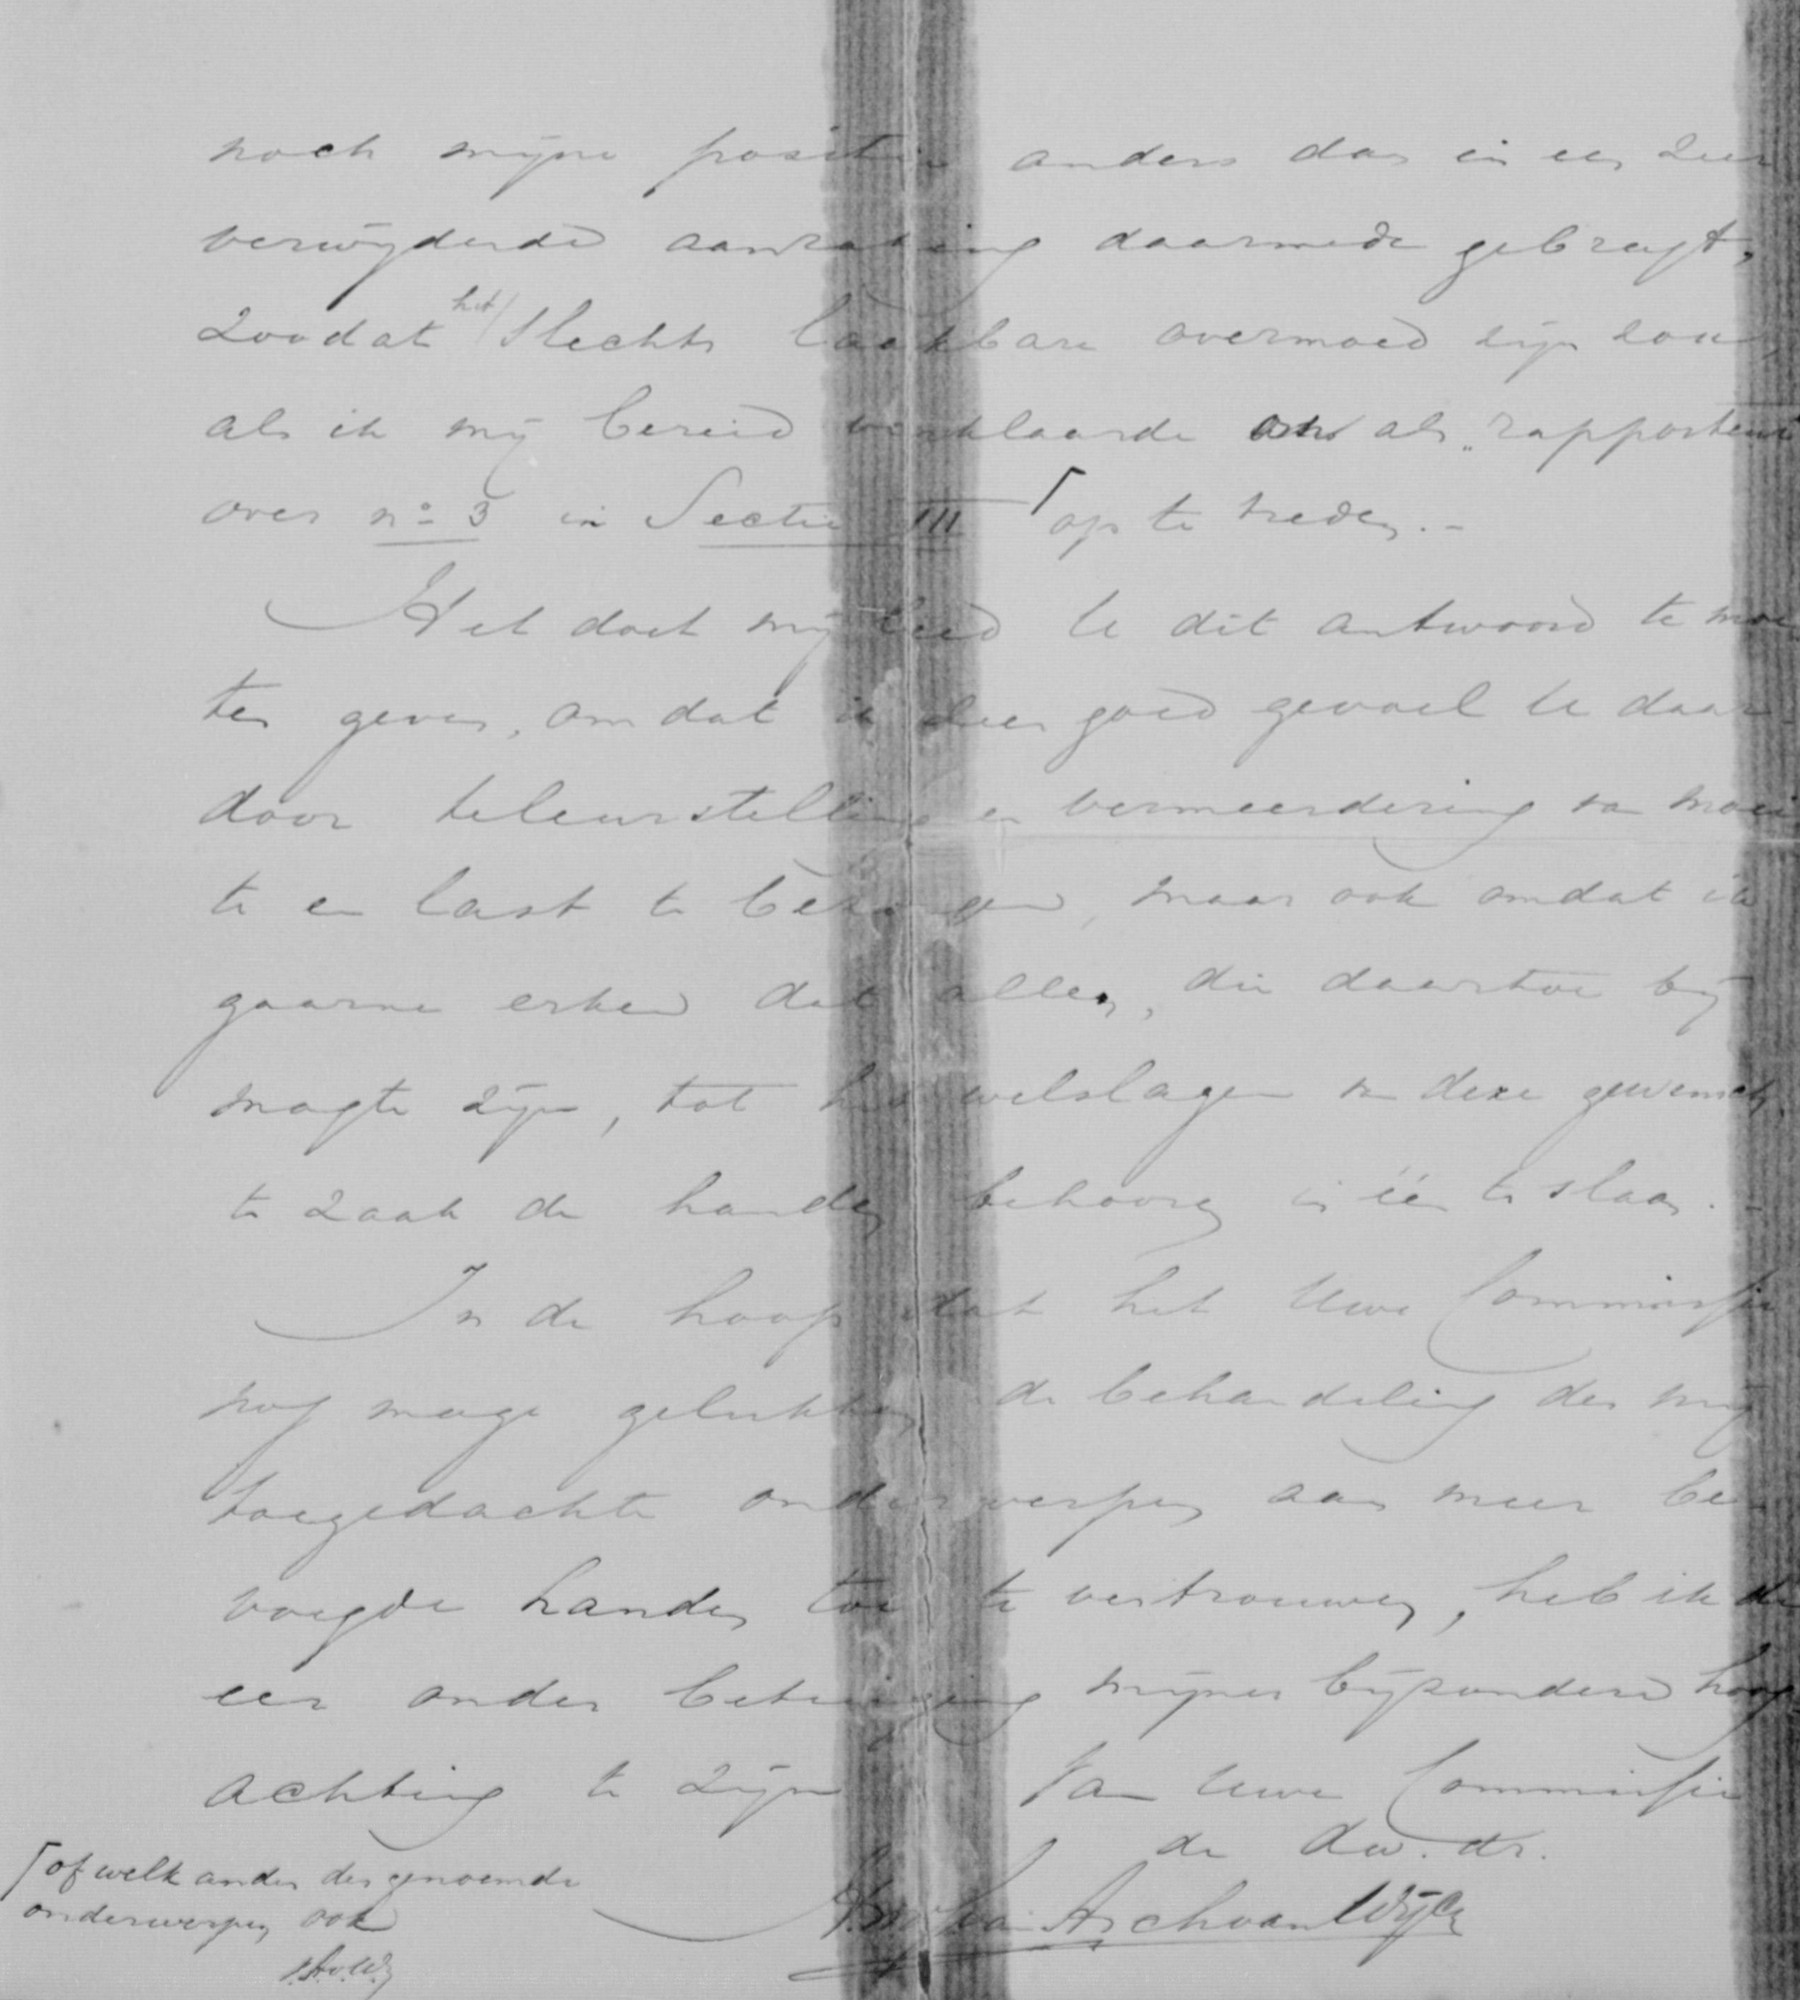 noch mijne positie anders dan in een zeer
verwijderde aanraking daarmede gebragt,
zoodat het slechts laakbare overmoed zijn zou,
als ik mij bereid verklaarde als „rapporteur
over no 3 in Sectie III ⌈ op te treden. -
Het doet mij leed U dit antwoord te moe
ten geven, omdat ik zeer goed gevoel U daar-
door teleurstelling en vermeerdering van moei
te en last te bezorgen, maar ook omdat ik
gaarne erken dat allen, die daartoe bij
magte zijn, tot het welslagen van deze gewensch
te zaak de handen behooren in één te slaan. -
In de hoop dat het Uwe Commissie
nog moge gelukken de behandeling der mij
toegedachte onderwerpen aan meer be-
voegde handen toe te vertrouwen, heb ik de
eer onder betuiging mijner bijzondere hoog
achting te zijn Van Uwe Commissie
de dw. dr.
van Asch van Wijck
⌈ of welk ander der genoemde
onderwerpen ook